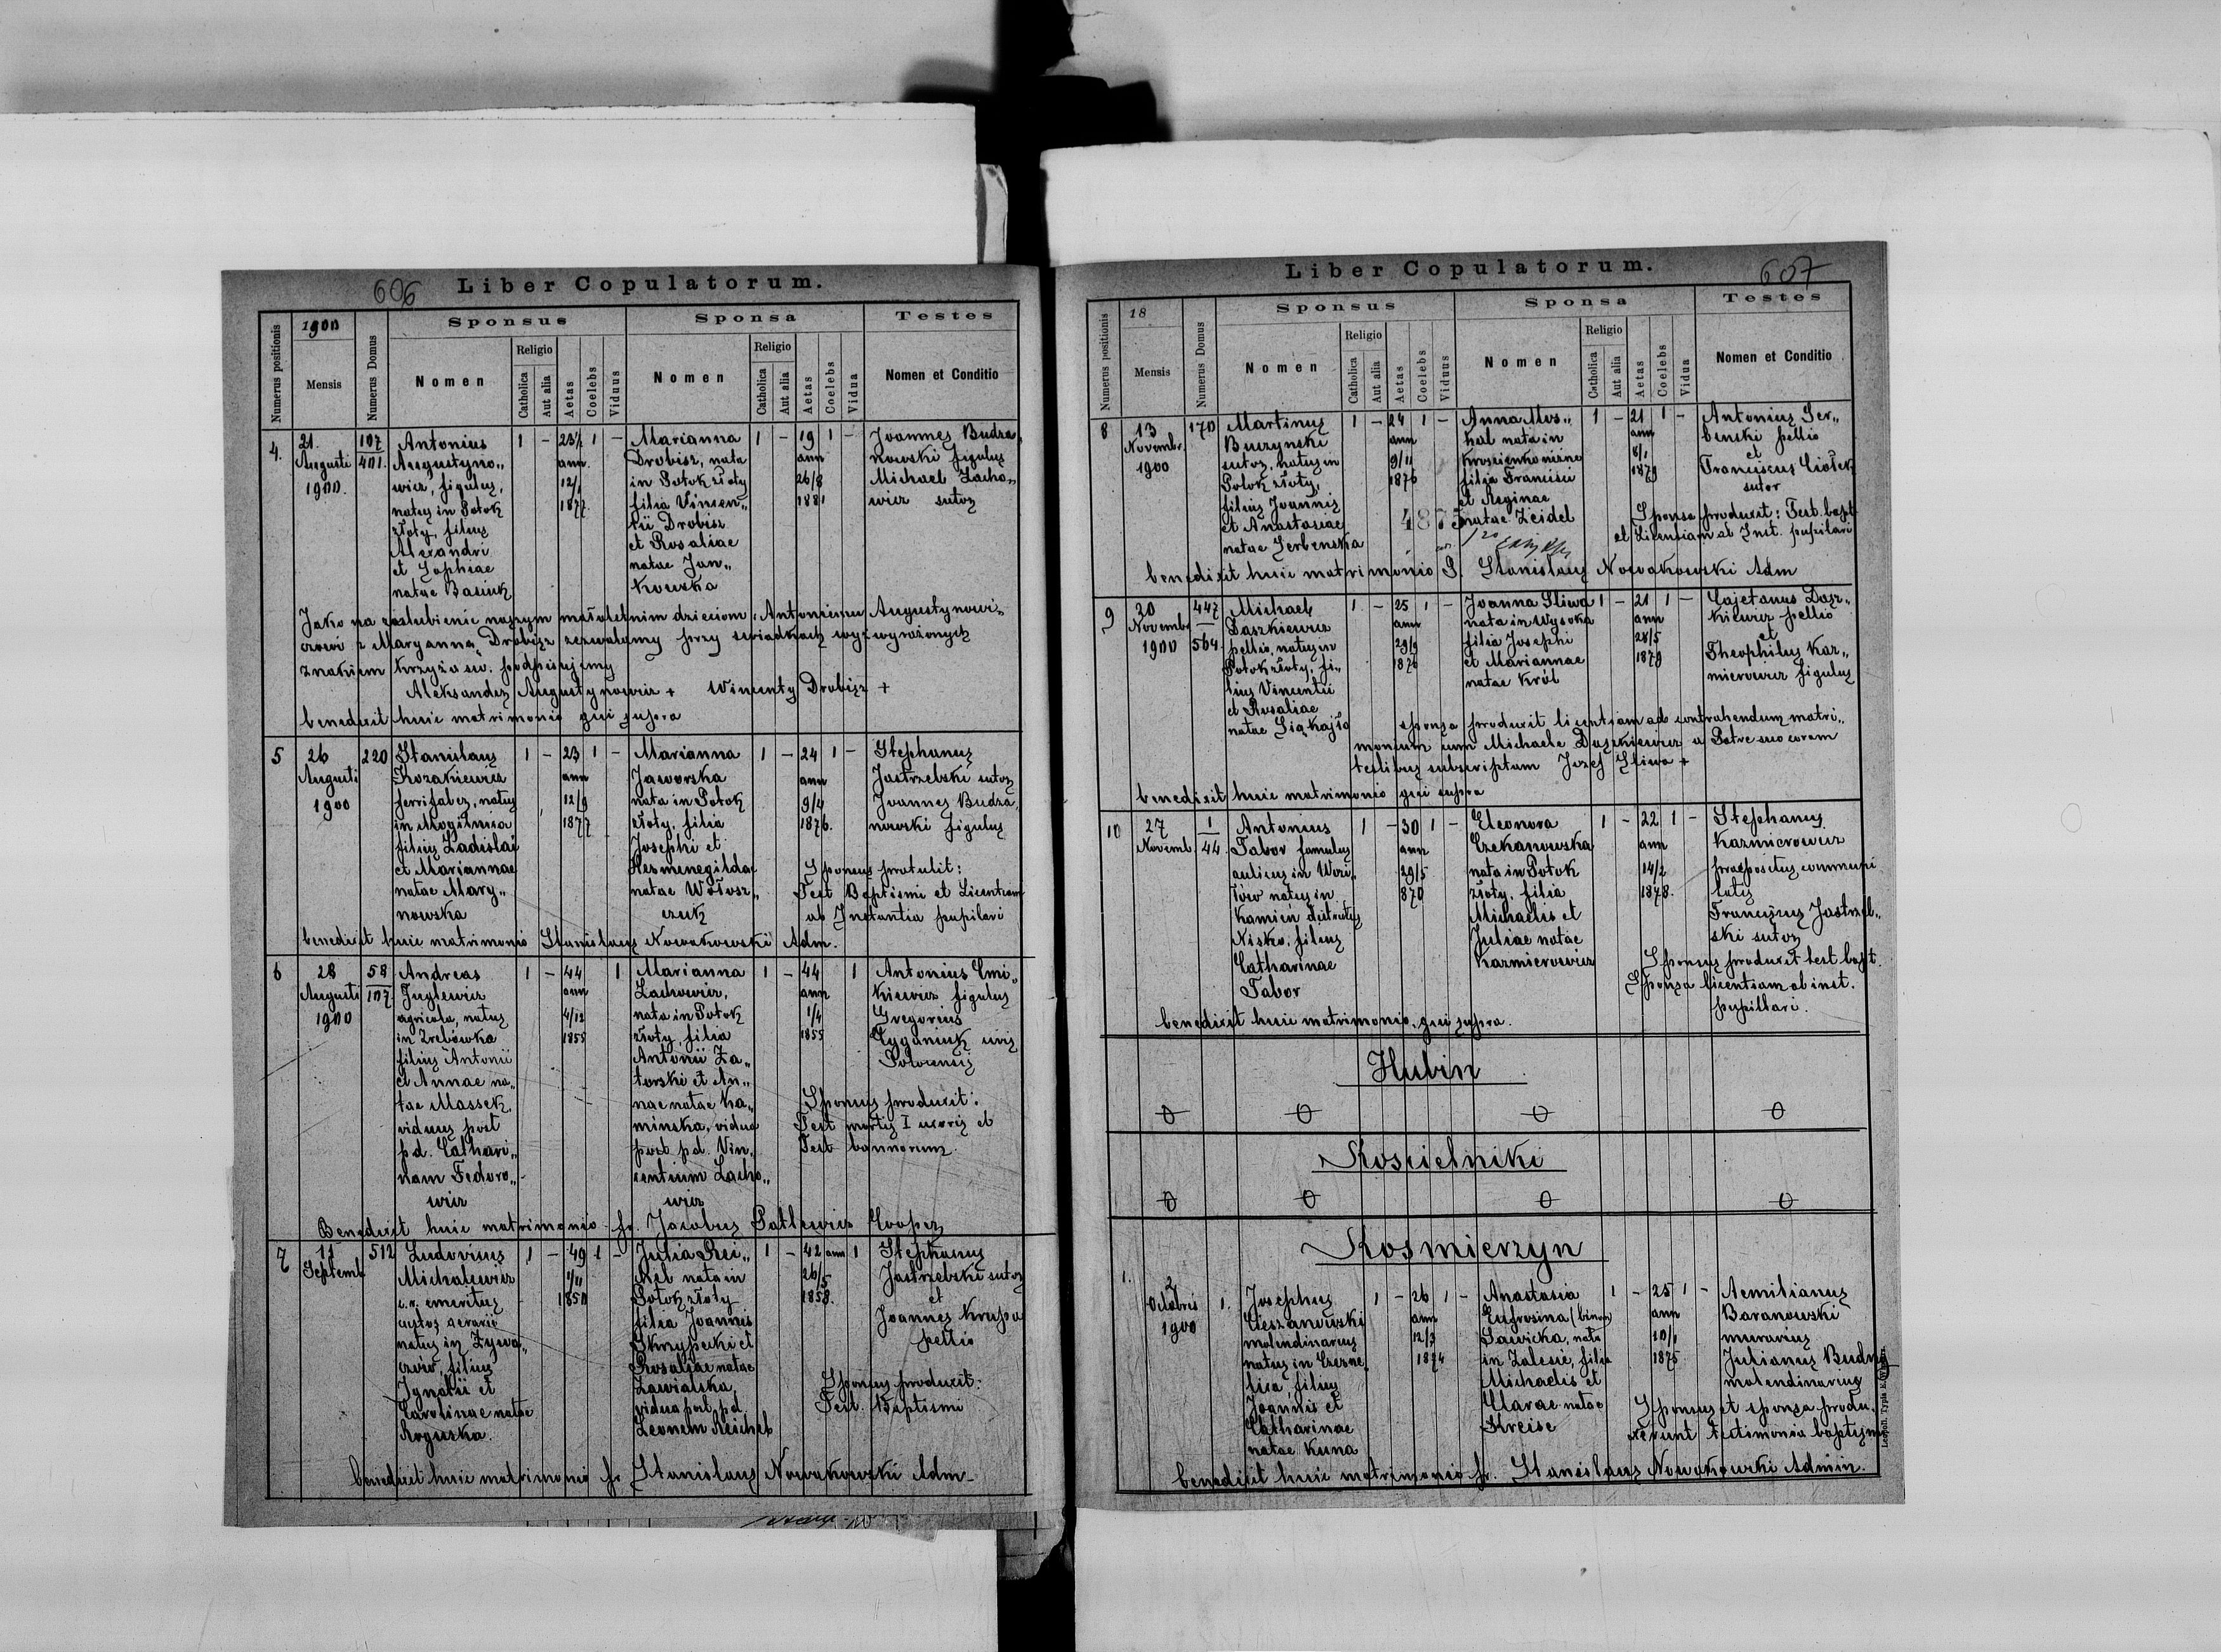 606
Liber Copulatorum.
Numerus positionis
1900
Mensis
Numerus Domus
Sponsus
Nomen
Religio
Catholica
Aut alia
Aetas
Coelebs
Viduus
Sponsa
Nomen
Religio
Catholica
Aut alia
Aetas
Coelebs
Vidua
Testes
Nomen et Conditio
4.
21.
Augusti
1900.
107
401.
Antonius
Augustyno„
wicz, figulus,
natus in Potok
złoty, filius
Alexandri
et Sophiae
natae Basiuk
1 – 23½ 1 –
ann.
12/1
1877
Marianna
Drobisz, nata
in Potok złoty
filia Vincen„
tii Drobisz
et Rosaliae
natae Jan„
kowska
1 – 19 1 –
ann
26/8
1881
Joannes Budza„
nowski figulus
Michael Zacho„
wicz sutor
Jako na zaslubienie naszym małoletnim dzieciom: Antoniemu Augustynowi„
czowi z Maryanną Drobisz zezwalamy przy swiadkach wyż wyrażonych
znakiem krzyża sw. podpisujemy
Aleksander Augustynowicz + Wincenty Drobisz +
benedixit huic matrimonio qui supra
5
26
Augusti
1900
220
Stanislaus
Kozakiewicz
ferrifaber, natus
in Mogilnica
filius Ladislai
et Mariannae
natae Mary„
nowska
1 – 23 1 –
ann
12/9
1877
Marianna
Jaworska
nata in Potok
złoty, filia
Josephi et
Hermenegildae
natae Wołosz„
czuk
1 – 24 1 –
ann
9/4
1876.
Stephanus
Jastrzebski sutor
Joannes Budza„
nowski figulus
Sponsus protulit:
Test Baptismi et Licentiam
ab Instantia pupilari
benedixit huic matrimonio Stanislaus Nowakowski Adm.
6
28
Augusti
1900
58
107
Andreas
Juglewicz
agricola, natus
in Zrebówka
filius Antonii
et Annae na„
tae Massek,
viduus post
pd. Cathari„
nam Fedoro„
wicz
1 – 44 1
ann
4/12
1855
Marianna
Zachowicz,
nata in Potok
złoty, filia
Antonii Za„
torski et An„
nae natae Ka„
minska, vidua
post pd. Vin„
centium Zacho„
wicz
1 – 44 1
ann
1/4
1855
Antonius Cmi„
kiewicz figulus
Gregorius
Cyganiuk civis
Potocensis
Sponsus produxit:
Test mortis I uxoris et
Test bannorum.
Benedixit huic matrimonio fr. Jacobus Patlewicz Cooper
7
11
Septemb
512
Ludovicus
Michalewicz
c.r. emeritus
custos aerarii
natus in Zywa„
czów, filius
Ignatii et
Carolinae natae
Roguzka.
1 – 49 1 –
1/11
1850
Julia Rei„
chel nata in
Potok złoty
filia Joannis
Skrzypecki et
Rosaliae natae
Zawialska,
vidua post pd
Leonem Reichel
1 – 42 ann 1
26/5
1858.
Stephanus
Jastrzebski sutor
et
Joannes Krupa
pellio
Sponsus produxit:
Test. Baptismi
benedixit huic matrimonio fr Stanislaus Nowakowski Adm–
607
Liber Copulatorum.
Numerus positionis
18
Mensis
Numerus Domus
Sponsus
Nomen
Religio
Catholica
Aut alia
Aetas
Coelebs
Viduus
Sponsa
Nomen
Religio
Catholica
Aut alia
Aetas
Coelebs
Vidua
Testes
Nomen et Conditio
8
13
Novemb.
1900
170
Martinus
Buczynski
sutor, natus in
Potok złoty,
filius Joannis
et Anastasiae
natae Serbenska
1 – 24 1 –
ann
9/11
1876
Anna Mos„
kal nata in
filia Francisci
et Reginae
natae Zeidel
1 – 21 1 –
ann
8/1
1879
Antonius Ser„
benski pellio
et
Franciscus Ciołek
sutor
Sponsa produxit: Test. bapt
et Licentiam ab Inst. pupilari
benedixit huic matrimonio S. Stanislaus Nowakowski Adm
9
20
Novemb
1900
447
564
Michael
Daszkiewicz
pellio, natus in
Potok złoty, fi„
lius Vincentii
et Rosaliae
natae
1 – 25 1 –
ann
29/9
1876
Joanna Sliwa
nata in Wysoka
filia Josephi
et Mariannae
natae Król
1 – 21 1 –
ann
28/5
1879
Cajetanus Dasz„
kiewicz pellio
et
Theophilus Kaz„
mierowicz figulus
Sponsa produxit licentiam ad contrahendum matri„
monium cum Michaele Daszkiewicz a Patre suo coram
testibus subscriptam Jozef Sliwa +
benedixit huic matrimonio qui supra
10
27
Novemb.
1
44
Antonius
Tabor famulus
aulicus in Wozi„
łów natus in
Kamień districtus
Nisko, filius
Catharinae
Tabor
1 – 30 1 –
ann
29/5
870
Eleonora
Czekanowska
nata in Potok
złoty, filia
Michaelis et
Juliae natae
Kazmierowicz
1 – 22 1 –
ann
14/2
1878.
Stephanus
Kazmierowicz
praepositus communi
tatis
Franciscus Jastrzeb„
ski sutor
Sponsus produxit test bapt.
Sponsa licentiam ab inst.
pupillari.
benedixit huic matrimonio, qui supra.
Hubin
0 0 0 0
Koscielniki
0 0 0 0
Kosmierzyn
1.
2
Octobris
1900
1.
Josephus
Cieszanowski
molendinarius
natus in Czerne„
lica, filius
Joannis et
Catharinae
natae Kuna
1 – 26 1 –
ann
12/3
1874
Anastasia
Eufrosina (binom)
Sawicka, nata
in Zalesie, filia
Michaelis et
Clarae natae
Kreise
1 – 25 1 –
ann
10/1
1875
Aemilianus
Baranowski
murarius
Julianus Budny
molendinarius
Sponsus et sponsa produ„
xerunt testimonia baptismi
benedixit huic matrimonio fr. Stanislaus Nowakowski Admin.